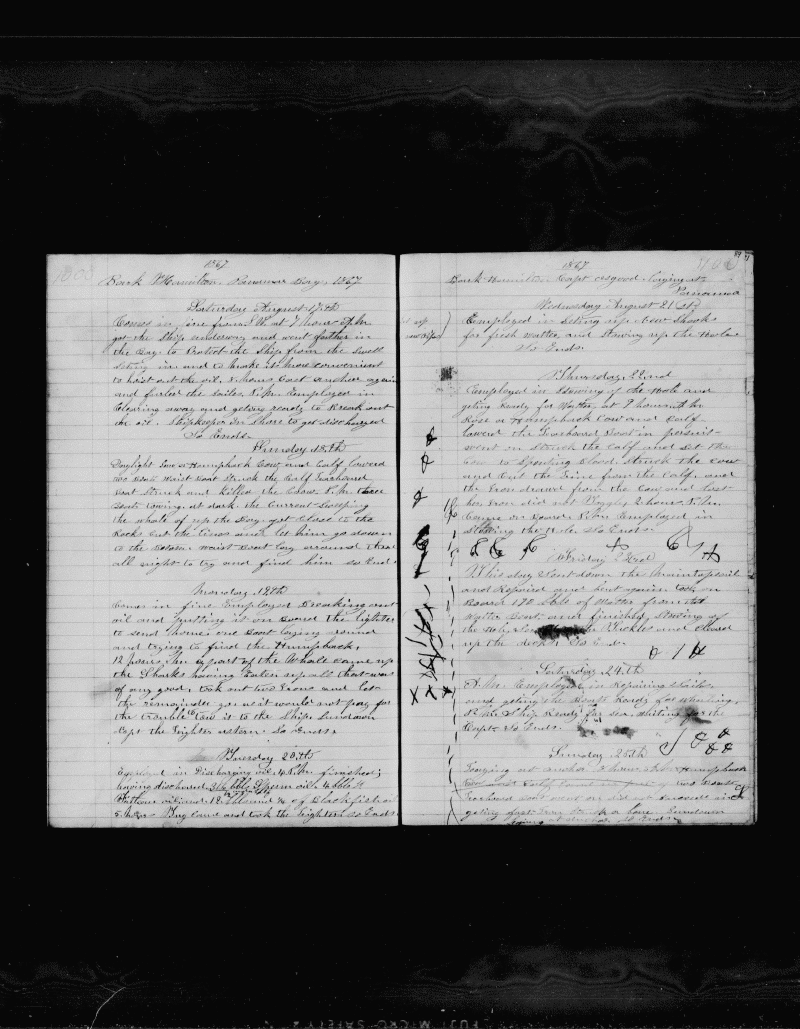 1867
Bark Hamilton. Panama Bay, 1867
Saturday August 17th
Comes in fine from W. at 7 hours A.M.
got the Ship underway and went farther in
the Bay to Protect the Ship from the Swell
seting in and to make it more convenient
to hoist out the oil, 8 hours Cast anchor again
and furled the Sailes. P.M. Employed in
Clearing away and geting ready to Break out
the oil. Shipkeeper on Shore to get discharged
So Ends.
Sunday 18th
Daylight Saw a Humpback Cow and Calf lowered
two Boats Waist Boat Struck the Calf Larboard
Boat Struck and Killed the Cow. P.M. three
Boats towing, at dark the Current Sweeping
the whale of up the Bay. got Close to the
Rocks Cut the lines and let him go down
to the Bottom. Waist Boat lay around there
all night to try and find him So Ends.
Monday 19th
Comes in fine Employed Breaking out
oil and Putting it on Board the lighter
to send home. one Boat laying round
and trying to find the Humpback,
12 hours then a part of the Whale came up
the Sharks having Eaten up all that was
of any good, took out two Irons and let
the remainder go as it would not pay for
the trouble to tow it to the Ship. Sundown
Kept the lighter astern So Ends.
Tuesday 20th
Employed in Discharging oil 4 P.M. finished;
having discharged 314 bbls Sperm oil
England and took the lighter So Ends
1867
Bark Hamilton Capt Osgood. laying at
Panama
Wednesday August 21st
Employed in Seting up New Shooks
for fresh Water and Stowing up the Hole
So Ends.
Thursday 22nd
Employed in Stowing of the Hole and
geting Ready for Water, at 9 hours A.M.
Rose a Humpback Cow and Calf
lowerd the Larboard Boat in persuit
went on Struck the Calf and Set the
Cow to Spouting Blood. Struck the Cow
and Cut the line from the Calf. and
the Iron drawed from the Cow and lost
her, Iron did not Toggle, 2 hours P.M.
Came on Board. P.M. Employed in
Stowing the Hole. So Ends.
Friday 23rd
This day Sent down the Maintopsail
and Repaired and bent again took on
Board 170 bbls of Water from the
Water Boat. and finished Stowing of
the Hole, and Cleared
up the decks. So Ends.
Saturday 24th
A.M. Employed in Repairing Sailes.
and geting the Boats Ready for whaling,
P.M. Ship Ready for sea, waiting for the
Capt. So Ends.
Sunday 25th
Laying at anchor
Larboard Boat went on did not succeed in
geting fast Iron Struck a bone. Sundown
laying at anchor. So Ends.